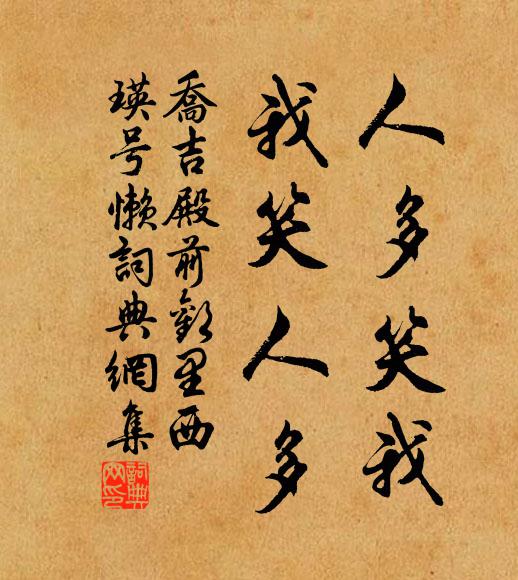 人多笑我
我笑人多
喬吉殿前歡里西
瑛号懶詞典網集
詞典
网印